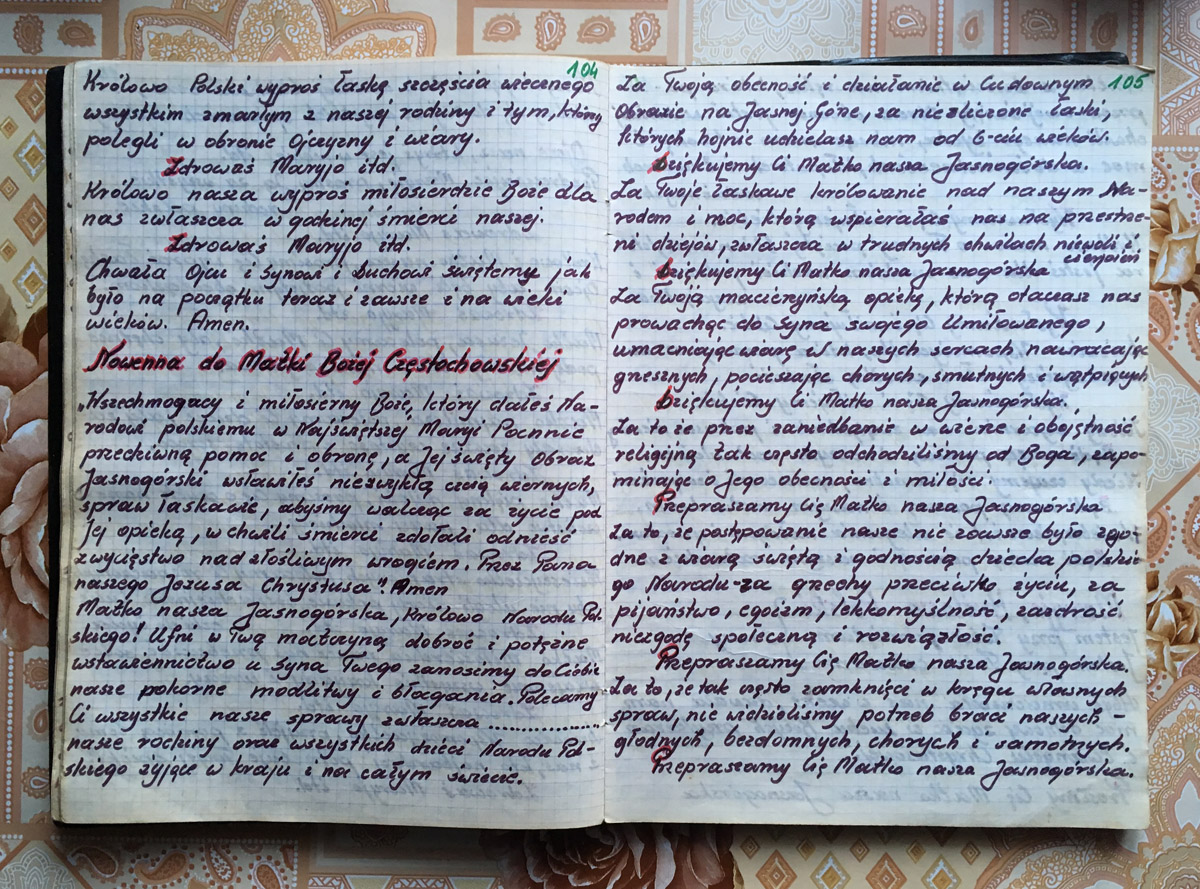 104
Królowo Polski wyproś łaskę szczęścia wiecznego
wszystkim zmarłym z naszej rodziny i tym, którzy
polegli w obronie Ojczyzny i wiary.
Zdrowaś Maryjo itd.
Królowo nasza wyproś miłosierdzie Boże dla
nas zwłaszcza w godzinę śmierci naszej.
Zdrowaś Maryjo itd.
Chwała Ojcu i Synowi i Duchowi Świętemu jak
było na początku teraz i zawsze i na wieki
wieków. Amen.
Nowenna do Matki Bożej Częstochowskiej
„Wszechmogący i miłosierny Boże, który dałeś Na-
rodowi polskiemu w Najświętszej Maryi Pannie
przedziwną pomoc i obronę, a Jej święty Obraz
Jasnogórski wsławiłeś niezwykłą czcią wiernych,
spraw łaskawie, abyśmy walcząc za życie pod
Jej opieką, w chwili śmierci zdołali odnieść
zwycięstwo nad złośliwym wrogiem. Przez Pana
naszego Jezusa Chrystusa". Amen
Matko nasza Jasnogórska, Królowo Narodu Pol-
skiego! Ufni w Twą matczyną dobroć i potężne
wstawiennictwo u Syna Twego zanosimy do Ciebie
nasze pokorne modlitwy i błagania. Polecamy
Ci wszystkie nasze sprawy zwłaszcza ...................
nasze rodziny oraz wszystkich dzieci Narodu Pol-
skiego żyjące w kraju i na całym świecie.
105
Za Twoją obecność i działanie w Cudownym
Obrazie na Jasnej Górze, za niezliczone łaski,
których hojnie udzielasz nam od 6-ciu wieków.
Dziękujemy Ci Matko nasza Jasnogórska.
Za Twoje łaskawe królowanie nad naszym Na-
rodem i moc, którą wspierałaś nas na przestrze-
ni dziejów, zwłaszcza w trudnych chwilach niewoli i
cierpień
Dziękujemy Ci Matko nasza Jasnogórska
Za Twoją macierzyńską opiekę, którą otaczasz nas
prowadząc do Syna swojego Umiłowanego,
umacniając wiarę w naszych sercach nawracając
grzesznych, pocieszając chorych, smutnych i wątpiących
Dziękujemy Ci Matko nasza Jasnogórska.
Za to że przez zaniedbanie w wierze i obojętność
religijną tak często odchodziliśmy od Boga, zapo-
minając o Jego obecności i miłości.
Przepraszamy Cię Matko nasza Jasnogórska
Za to, że postępowanie nasze nie zawsze było zgo-
dne z wiarą świętą i godnością dziecka polskie-
go Narodu-za grzechy przeciwko życiu, za
pijaństwo, egoizm, lekkomyślność, zazdrość,
niezgodę społeczną i rozwiązłość.
Przepraszamy Cię Matko nasza Jasnogórska.
Za to, że tak często zamknięci w kręgu własnych
spraw, nie widzieliśmy potrzeb braci naszych -
głodnych, bezdomnych, chorych i samotnych.
Przepraszamy Cię Matko nasza Jasnogórska.